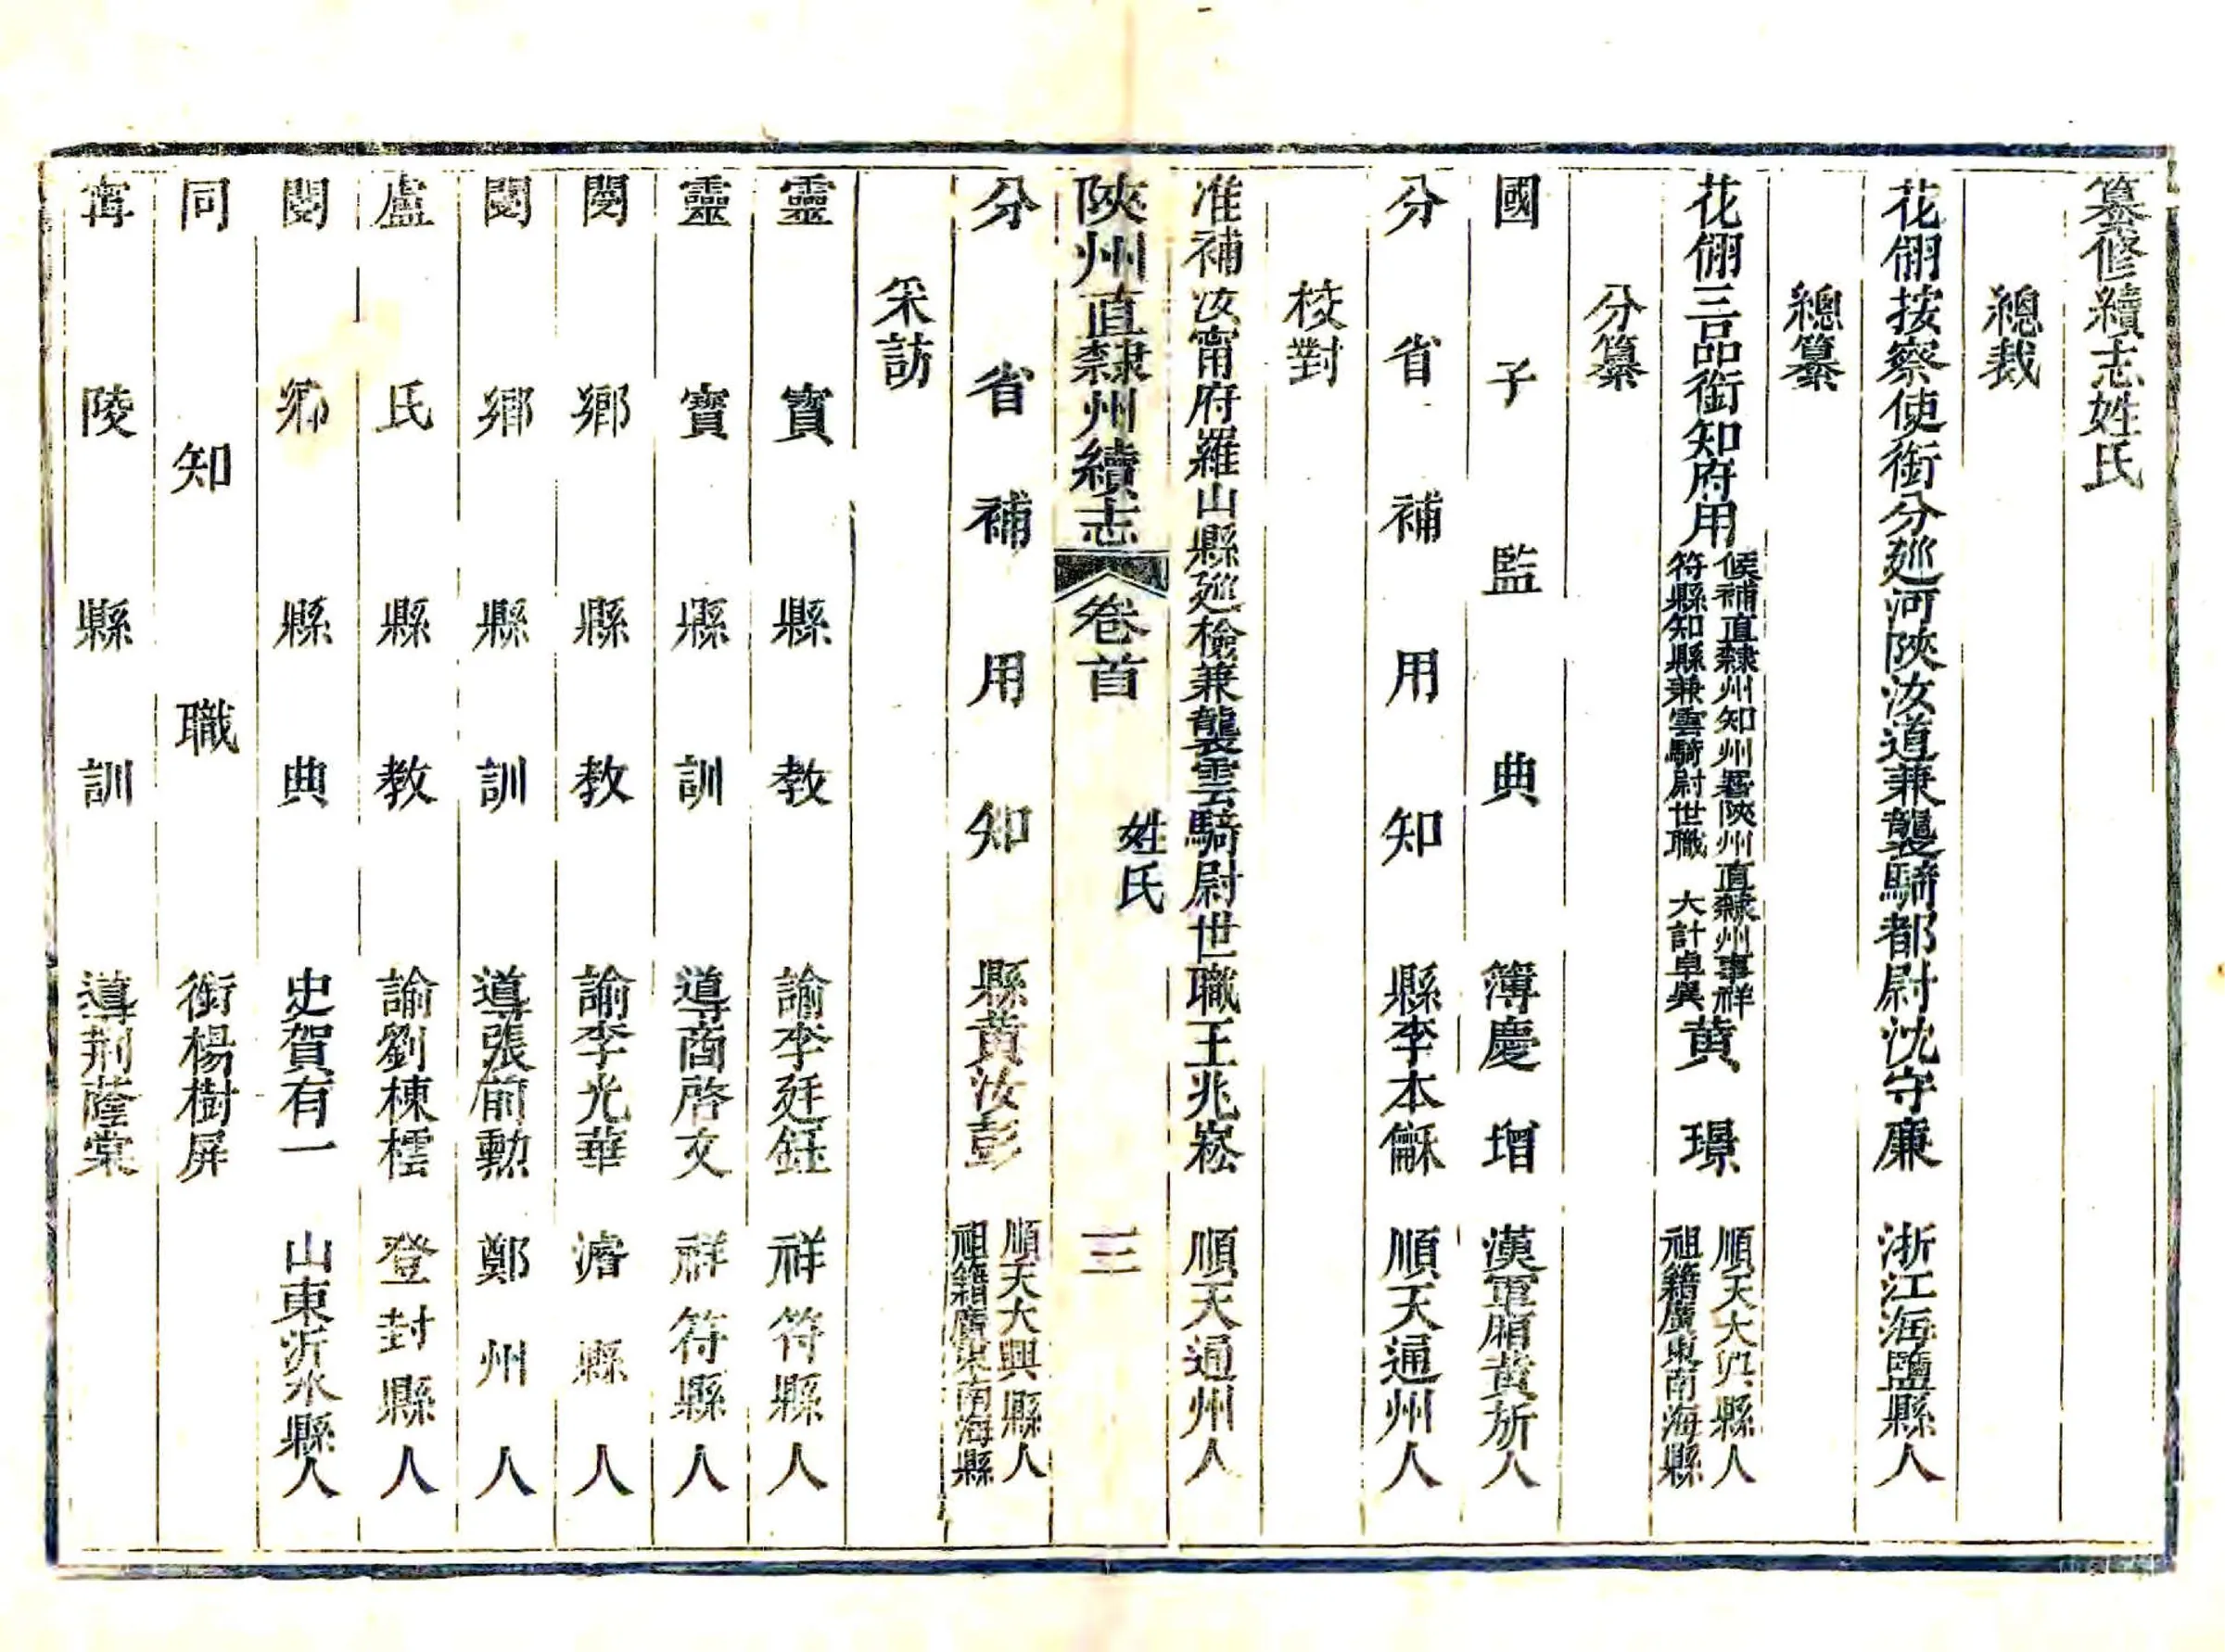 纂修續志姓氏
總裁
花翎按察使銜分廵河陝汝道兼襲騎都尉沈守廉 浙江海鹽縣人
總纂
花翎三品銜知府用 候補直隸州知州署陝州直隸州事祥 符縣知縣兼雲騎尉世職 大計卓異 黃 璟 順天大興縣人 祖籍廣東南海縣
分纂
國子監典簿慶增 漢軍廂黃旂人
分省補用知縣李本龢 順天通州人
校對
准補汝甯府羅山縣廵檢兼襲雲騎尉世職王兆崧 順天通州人
陝州直隸州續志 卷首 姓氏 三
分省補用知縣黃汝彭 順天大興縣人 祖籍廣東南海縣
采訪
靈寶縣教諭李廷鈺 祥符縣人
靈寶縣訓導商啓文 祥符縣人
閿鄉縣教諭李光華 濬縣人
閿鄉縣訓導張蔚勲 鄭州人
盧氏縣教諭劉棟橒 登封縣人
閿鄉縣典史賀有一 山東沂水縣人
同知職銜楊樹屏
甯陵縣訓導荆蔭棠